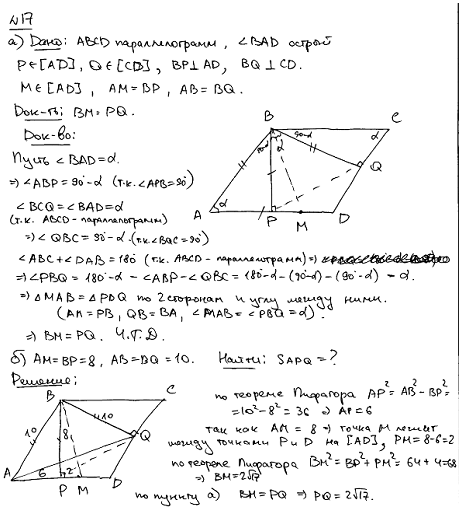 №17
а) Дано: ABCD параллелограмм, ∠BAD острый
P∈[AD], Q∈[CD], BP⊥AD, BQ⊥CD.
M∈[AD], AM=BP, AB=BQ.
Док-ть: BM=PQ.
Док-во:
Пусть ∠BAD=α.
⇒ ∠ABP=90°-α (т.к. ∠APB=90°)
∠BCQ=∠BAD=α
(т.к. ABCD-параллелограмм)
⇒ ∠QBC=90°-α (т.к. ∠BQC=90°)
B
C
A
P
M
D
Q
α
90-α
α
90-α
α
∠ABC+∠DAB=180° (т.к. ABCD-параллелограмм) ⇒
⇒ ∠PBQ = 180°-α -∠ABP-∠QBC = 180°-α-(90°-α)-(90°-α) = α.
⇒ △MAB=△PBQ по 2 сторонам и углу между ними.
(AM=PB, QB=BA, ∠MAB=∠PBQ=α).
⇒ BM=PQ. Ч.Т.Д.
б) AM=BP=8, AB=BQ=10. Найти: SAPQ=?
Решение:
B
C
A
P
M
D
Q
10
8
10
6
2
по теореме Пифагора AP²=AB²-BP²=
=10²-8²=36 ⇒ AP=6
так как AM=8 ⇒ точка M лежит
между точками P и D на [AD], PM=8-6=2
по теореме Пифагора BM²=BP²+PM²=64+4=68
⇒ BM=2√17
по пункту а) BM=PQ ⇒ PQ=2√17.